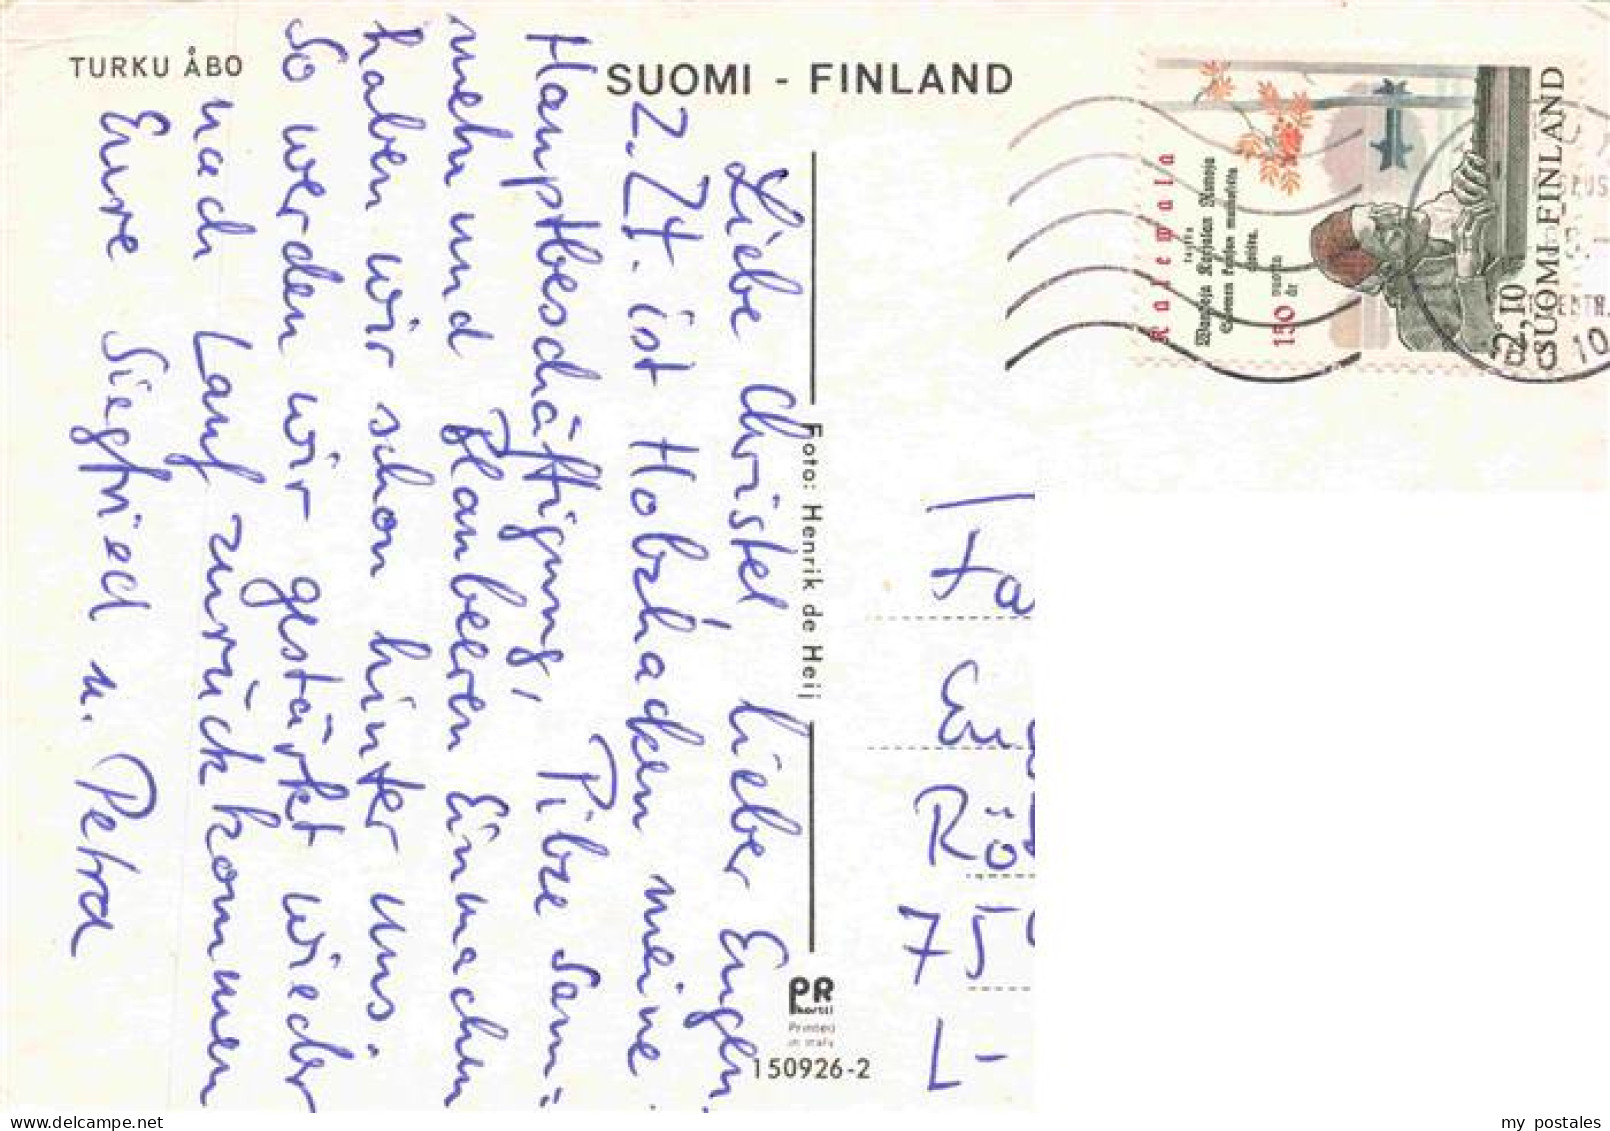 TURKU ÅBO
SUOMI - FINLAND
Liebe Christel, lieber Eugen,
z. Zt. ist Holzhacken meine
Hauptbeschäftigung, Pilze sam-
meln und Blaubeeren Einmachen
haben wir schon hinter uns.
So werden wir gestärkt wieder
nach Lauf zurückkommen
Eure Siegfried u. Petra
Foto: Henrik de Heij
PR
kortti
Printed
in Italy
150926-2
Kalewala
taikka
Wanhoja Karjalan Runoja
Suomen kansan muinoisista
ajoista.
150 vuotta
år
2,10
SUOMI FINLAND
Fa
Rö
75
L-
my postales